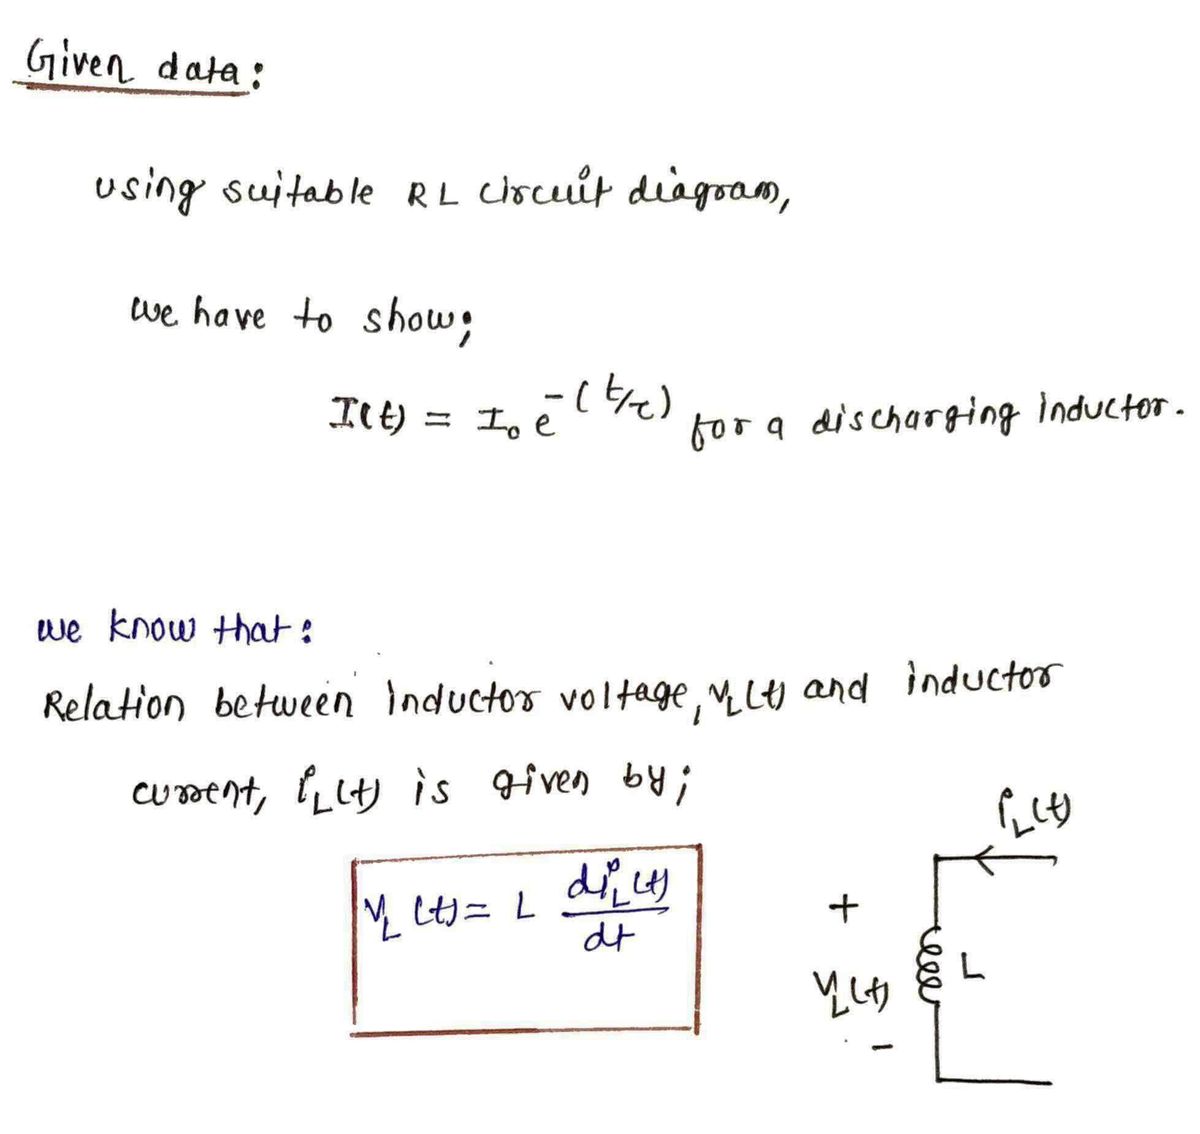 Given data:
using suitable RL circuit diagram,
we have to show;
I(t) = I₀ e^-(t/τ) for a discharging inductor.
we know that:
Relation between inductor voltage, V_L(t) and inductor
current, i_L(t) is given by;
i_L(t)
V_L(t) = L di_L(t)/dt
+
V_L(t)
L
-